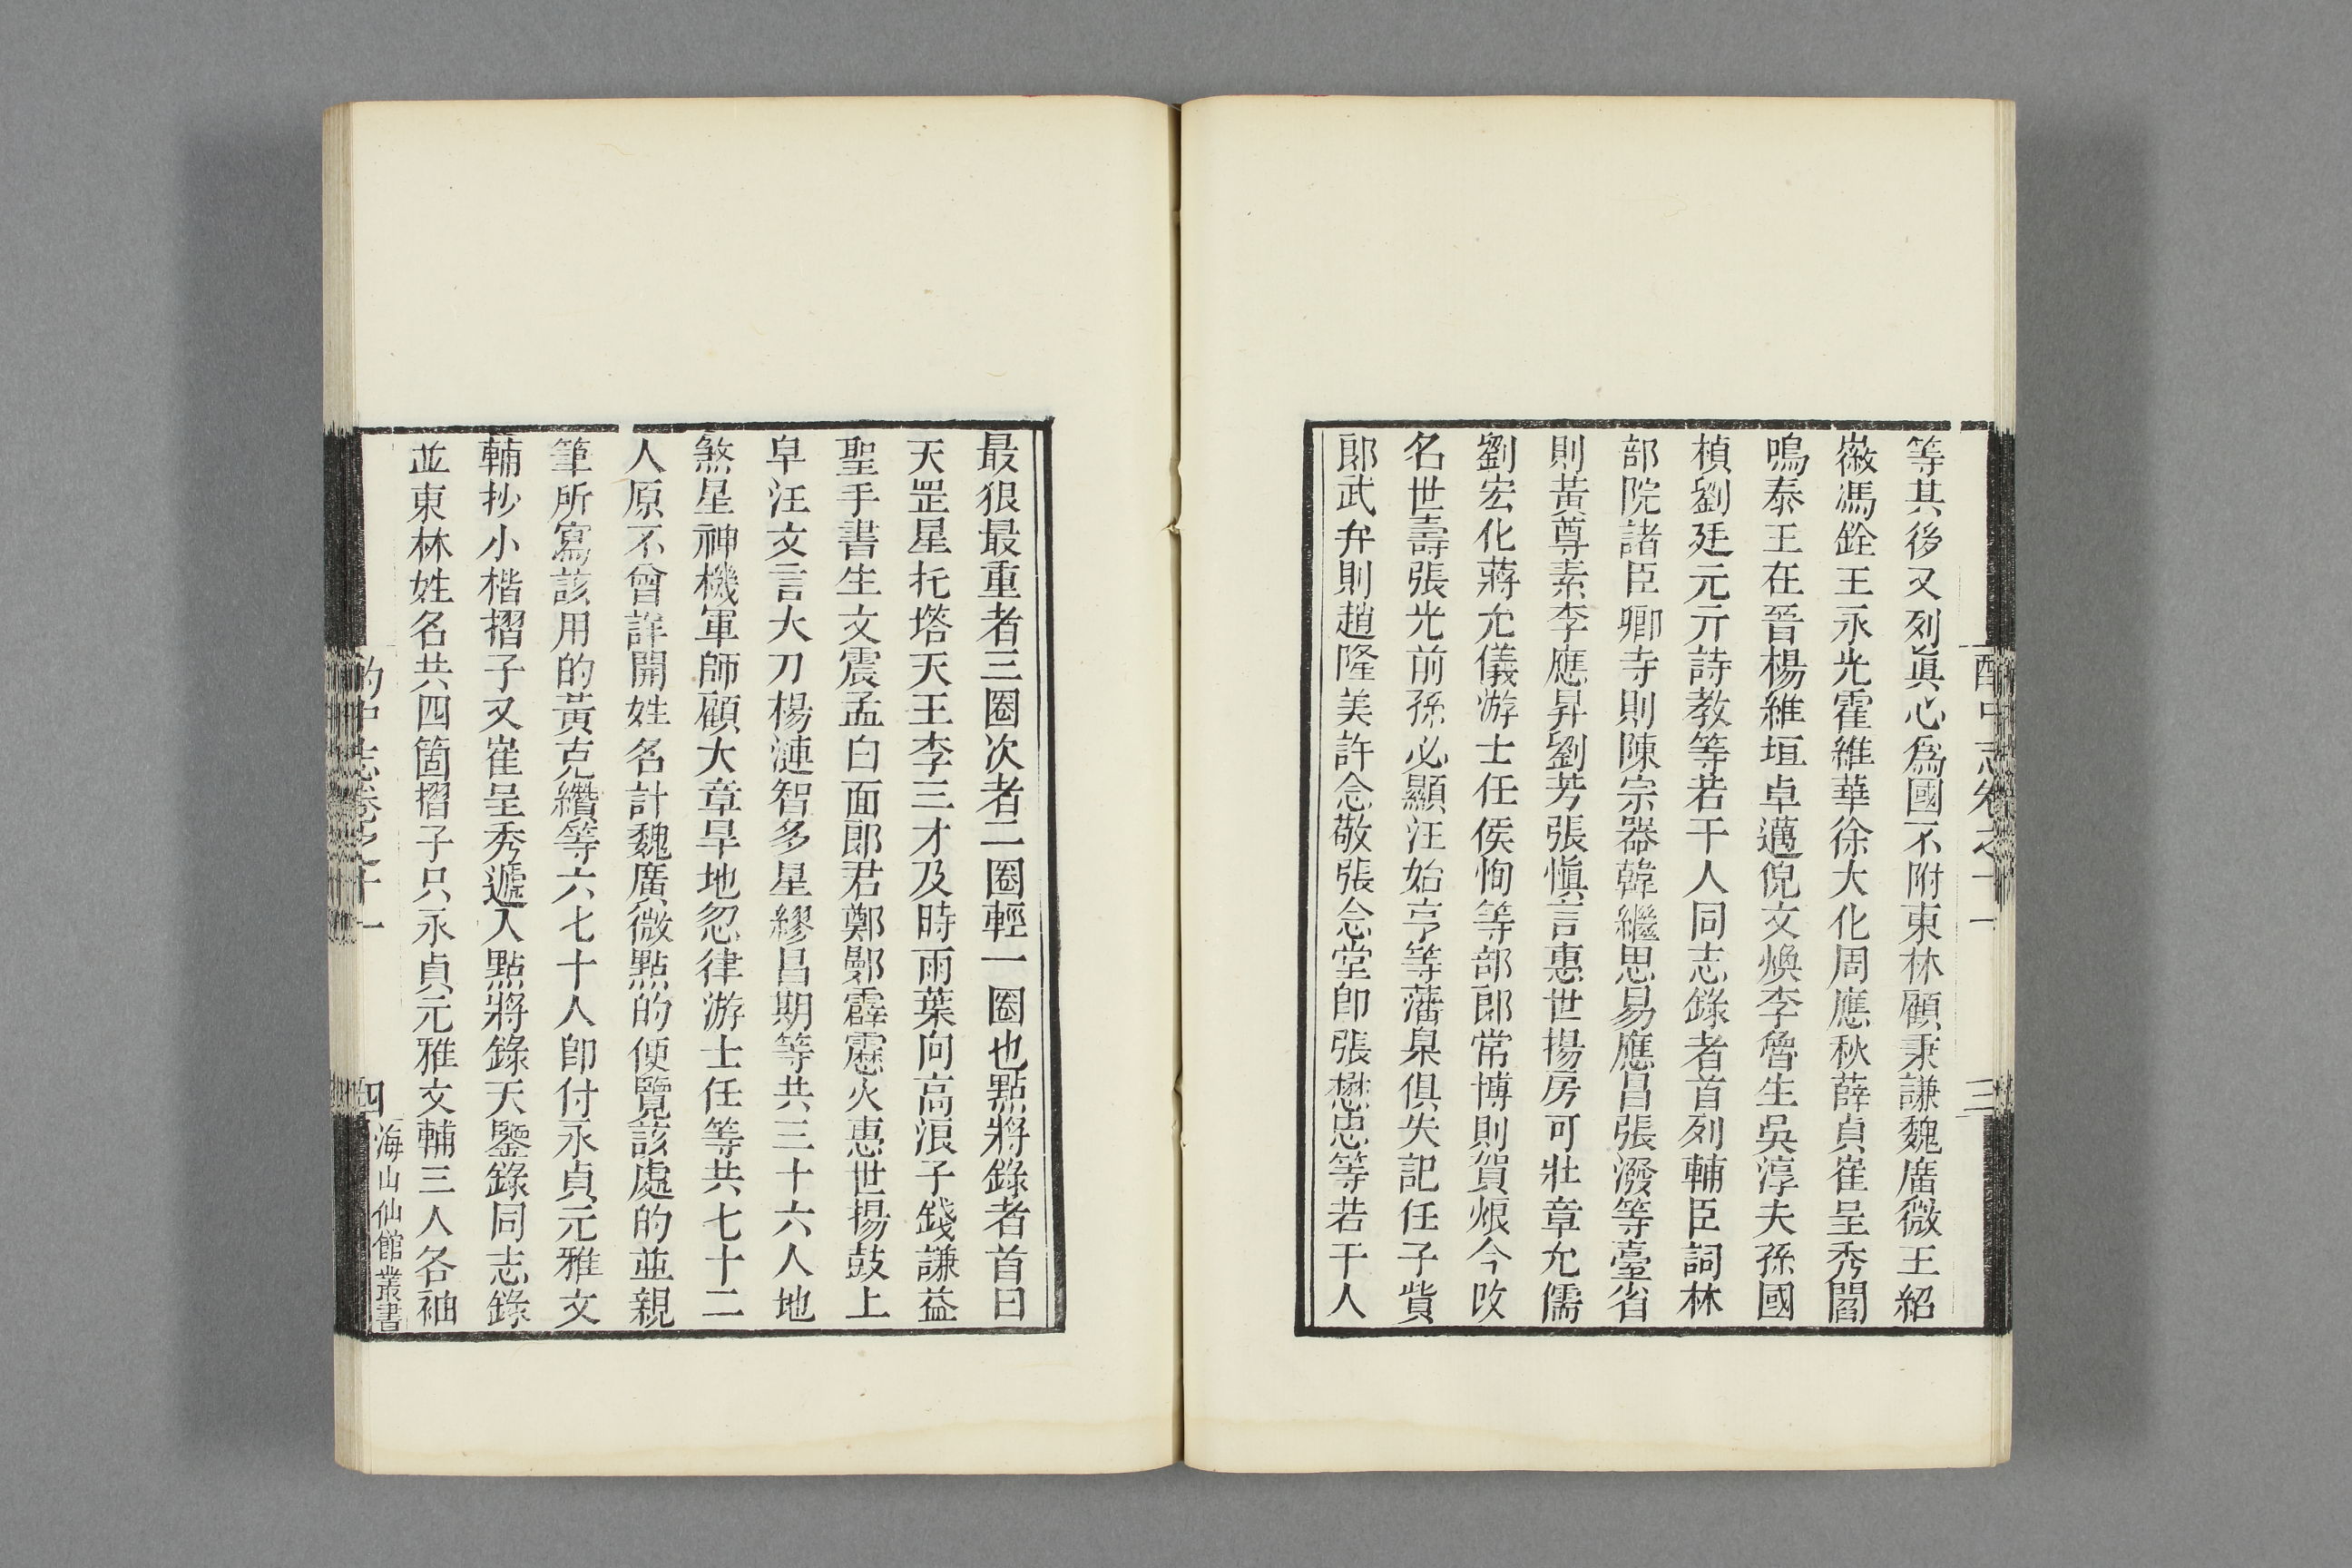 等其後又列眞心爲國不附東林顧秉謙魏廣微王紹
徽馮銓王永光霍維華徐大化周應秋薛貞崔呈秀閻
鳴泰王在晉楊維垣卓邁倪文煥李魯生吳淳夫孫國
楨劉廷元亓詩教等若干人同志錄者首列輔臣詞林
部院諸臣卿寺則陳宗器韓繼思易應昌張潑等臺省
則黃尊素李應昇劉芳張愼言惠世揚房可壯章允儒
劉宏化蔣允儀游士任侯恂等部郎常博則賀烺今改
名世壽張光前孫必顯汪始亨等藩臬俱失記任子貲
郎武弁則趙隆美許念敬張念堂卽張懋忠等若干人
酌中志卷之十一
三
最狠最重者三圈次者二圈輕一圈也點將錄者首曰
天罡星托塔天王李三才及時雨葉向高浪子錢謙益
聖手書生文震孟白面郎君鄭鄤霹靂火惠世揚鼓上
皁汪文言大刀楊漣智多星繆昌期等共三十六人地
煞星神機軍師顧大章旱地忽律游士任等共七十二
人原不曾詳開姓名計魏廣微點的便覽該處的並親
筆所寫該用的黃克纘等六七十人卽付永貞元雅文
輔抄小楷摺子又崔呈秀遞入點將錄天鑒錄同志錄
並東林姓名共四箇摺子只永貞元雅文輔三人各袖
酌中志卷之十一
四
海山仙館叢書